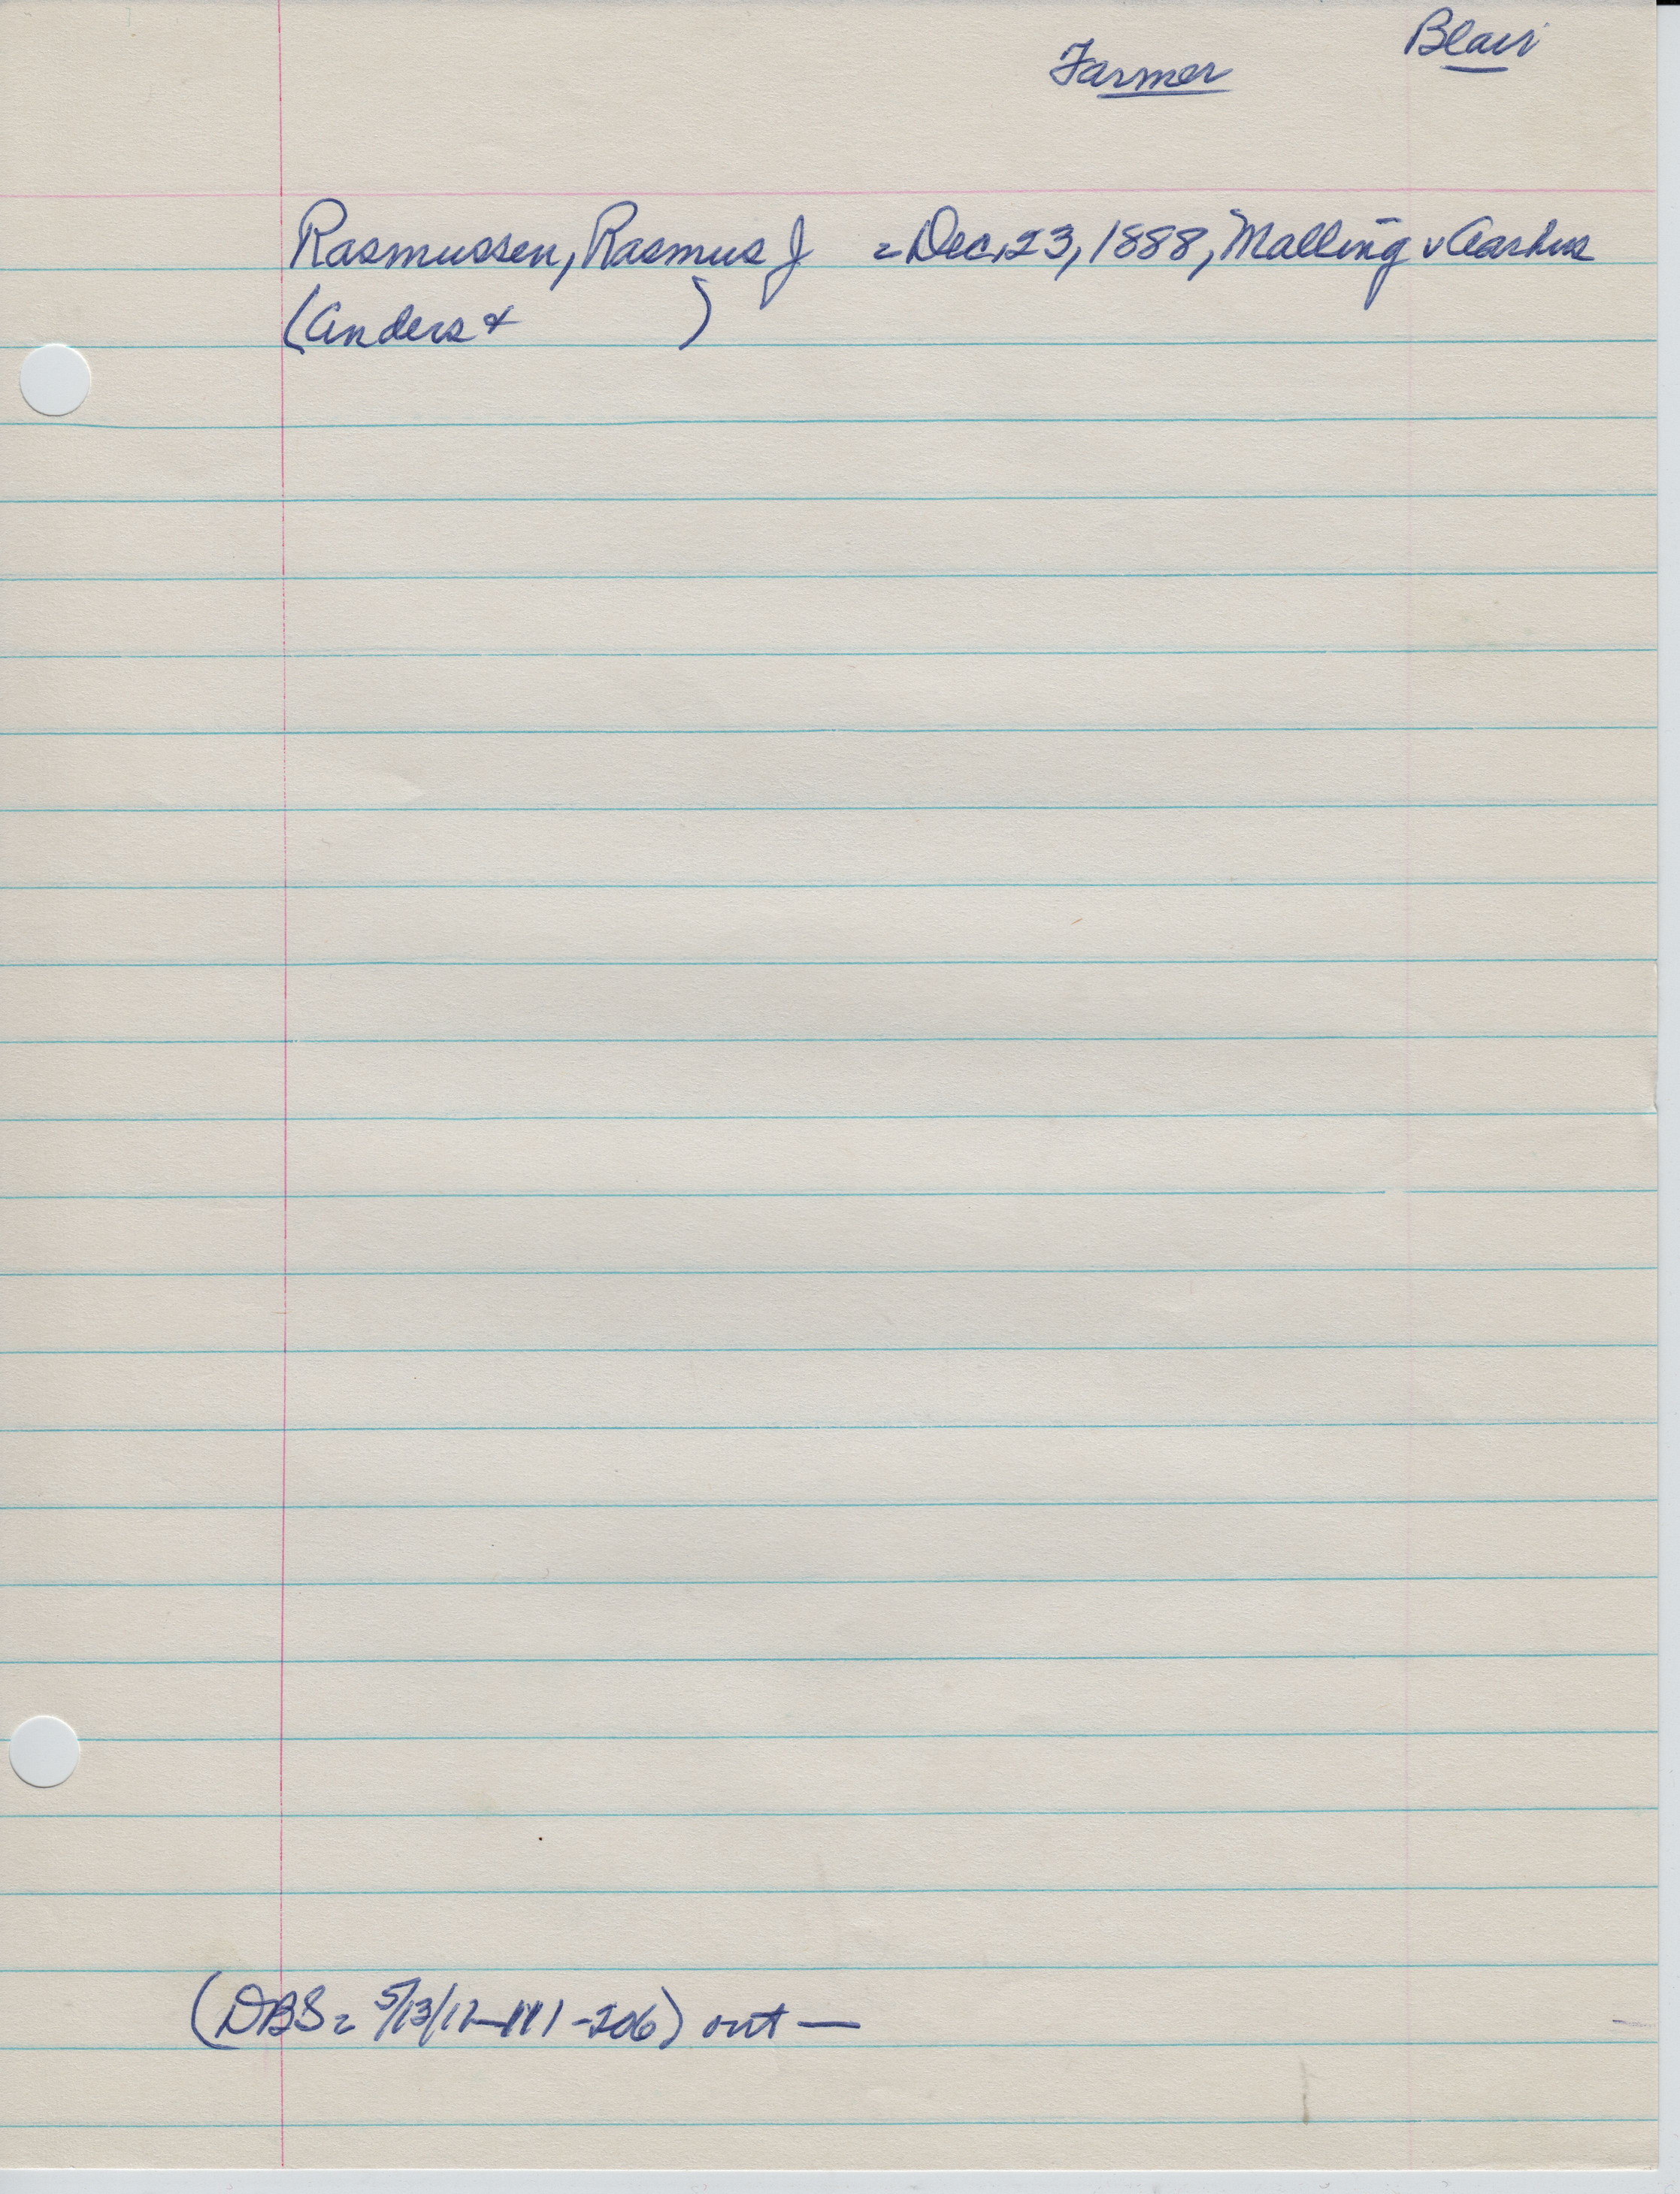 Blair
Farmer
Rasmussen, Rasmus J = Dec. 23, 1888, Malling v Aarhus
(Anders + )
(DBS = 5/13/12-111-206) out —